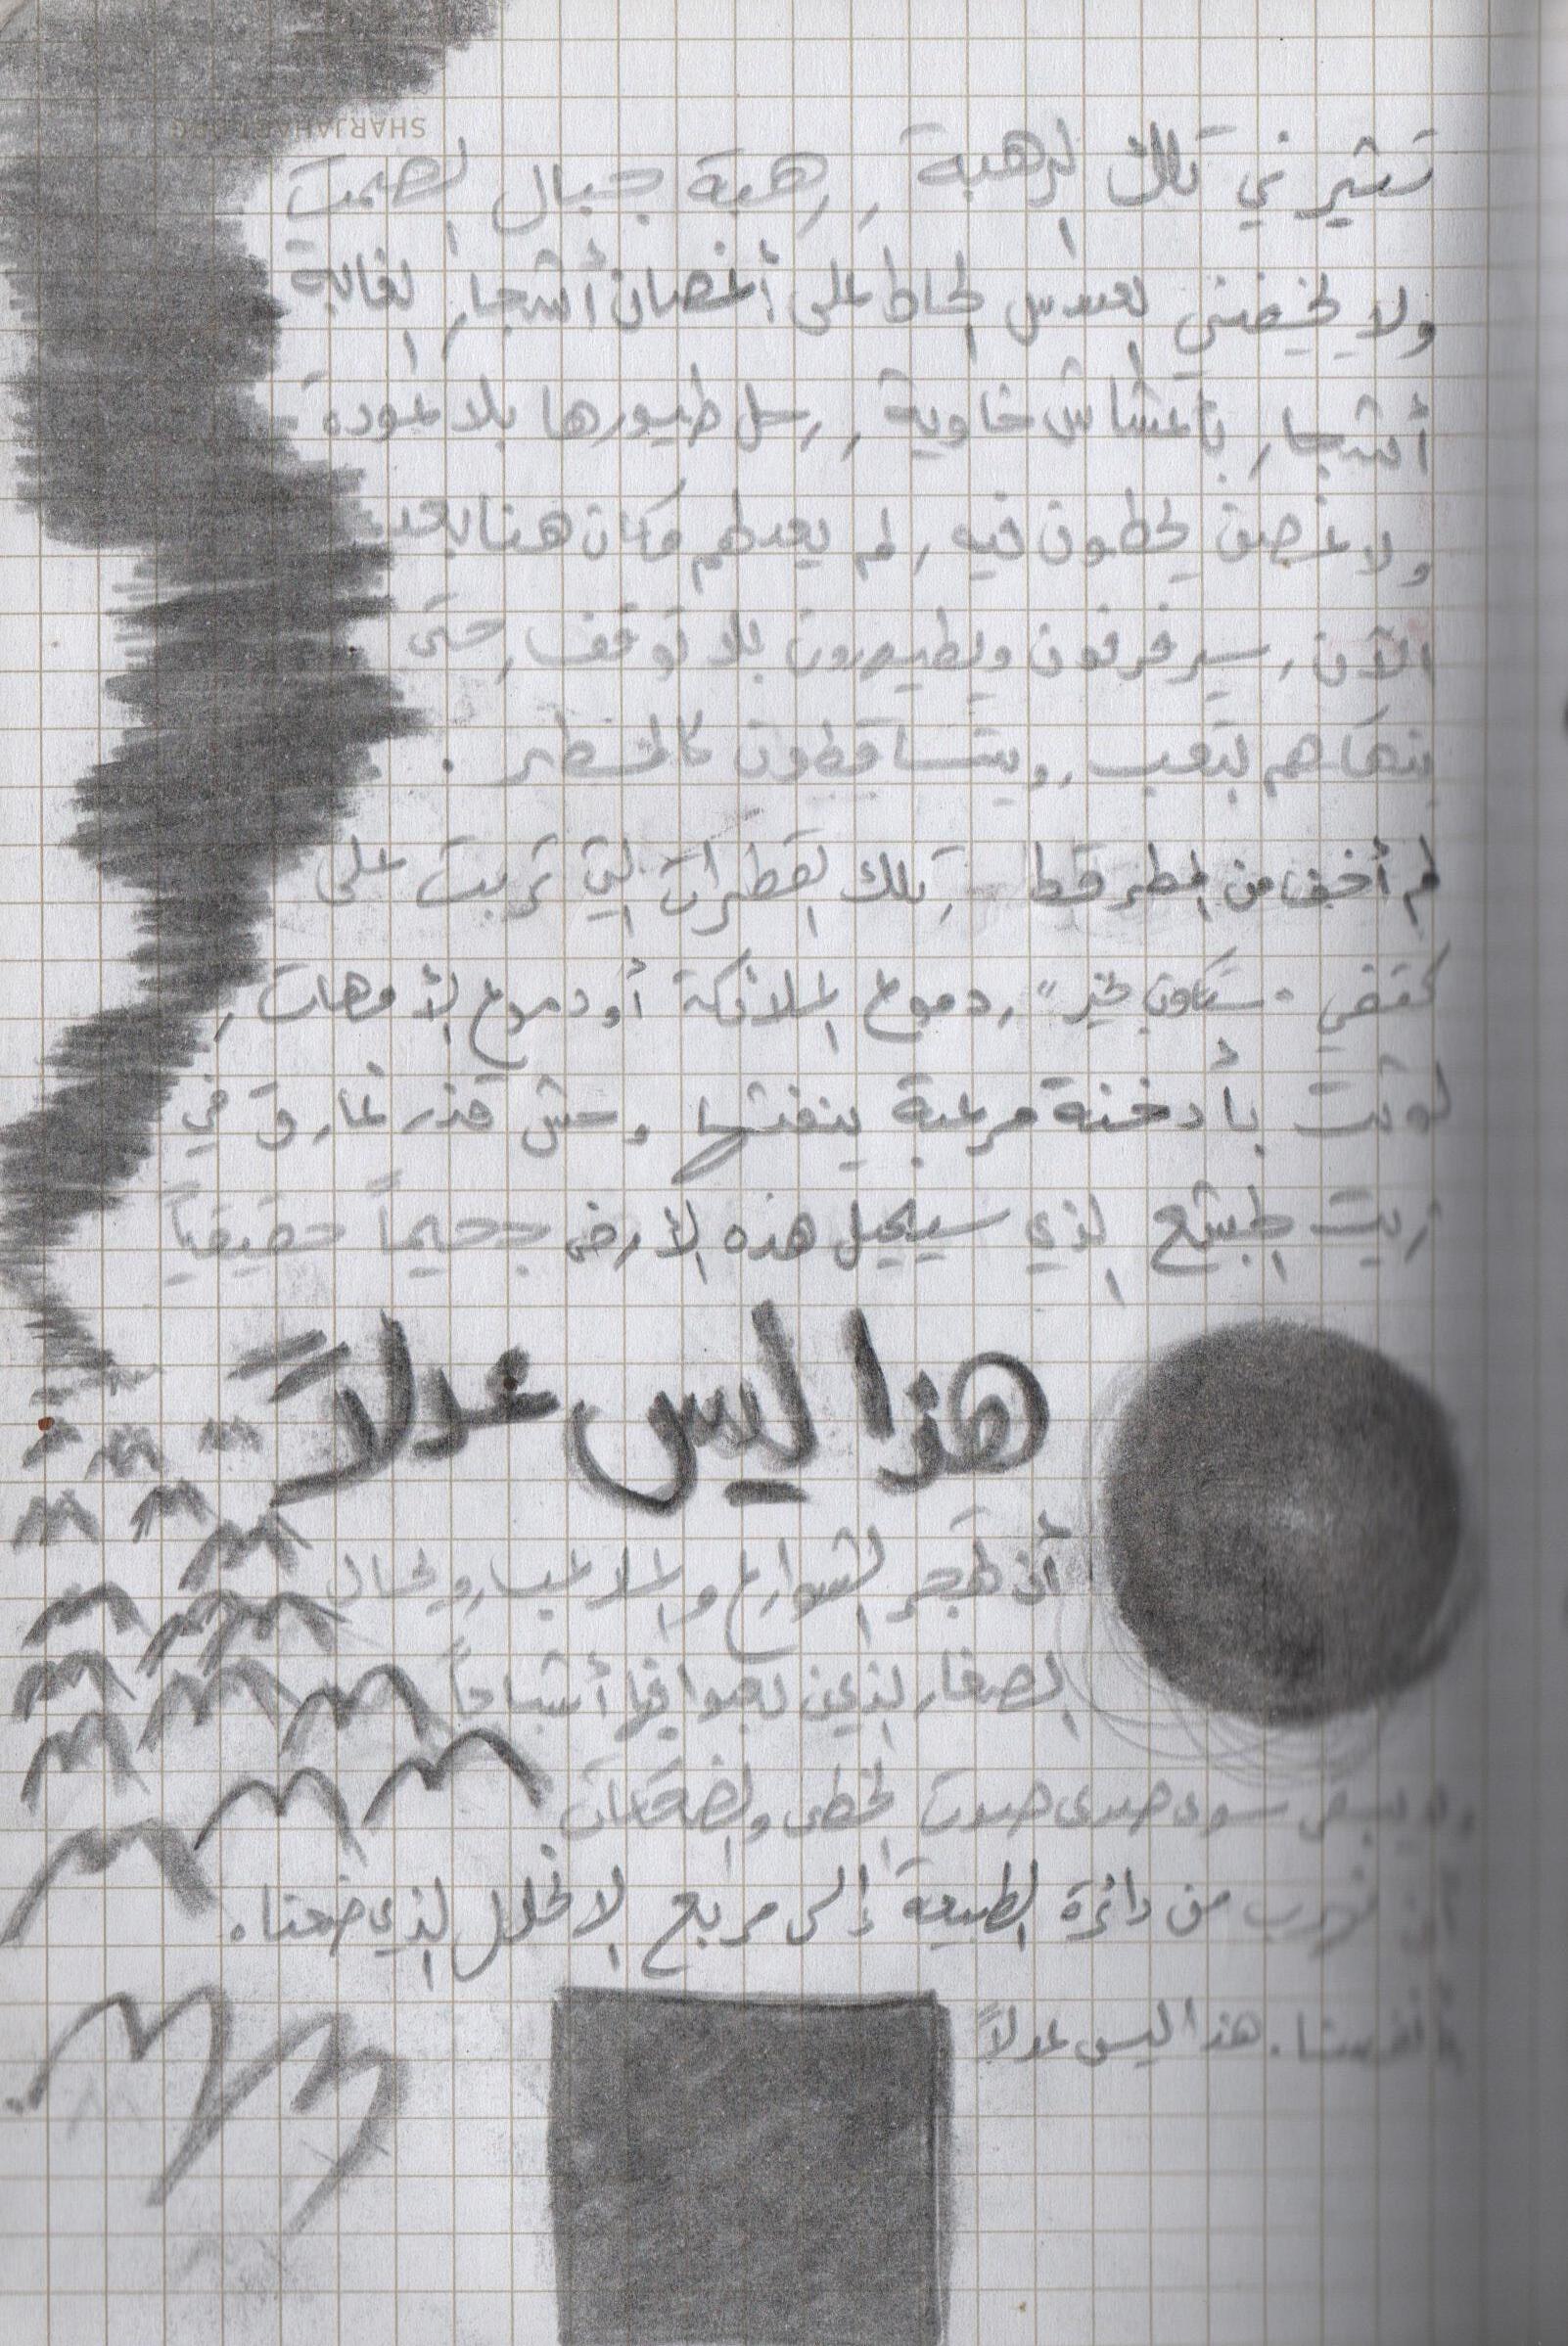 SHARJAHART.ORG
تثيرني تلك الرهبة، رهبة جبال الصمت
ولا يخيفني العبوس الحاط على أغصان أشجار الغابة
أشجار بأعشاش خاوية، رحل طيورها بلا عودة
ولا غصن يحطون فيه، لم يعد لهم مكان هنا بعد
الآن، سيرفرفون ويطيرون بلا توقف، حتى
ينهكهم التعب، ويتساقطون كالمطر.
لم أخف من المطر قط، تلك القطرات التي تربت على
كتفي "ستكون بخير"، دموع الملائكة أو دموع الأمهات،
لوثت بأدخنة مرعبة ينفثها وحش قذر غارق في
زيت الجشع الذي سيحيل هذه الأرض جحيماً حقيقياً
هذا ليس عدلاً
أن تهجر الشوارع والملاعب ويحال
الصغار الذين لعبوا فيها أشباحاً
ولا يبقى سوى صدى صوت الخطى والضحكات
أن نهرب من دائرة الطبيعة إلى مربع الانحلال الذي صنعناه
بأنفسنا. هذا ليس عدلاً